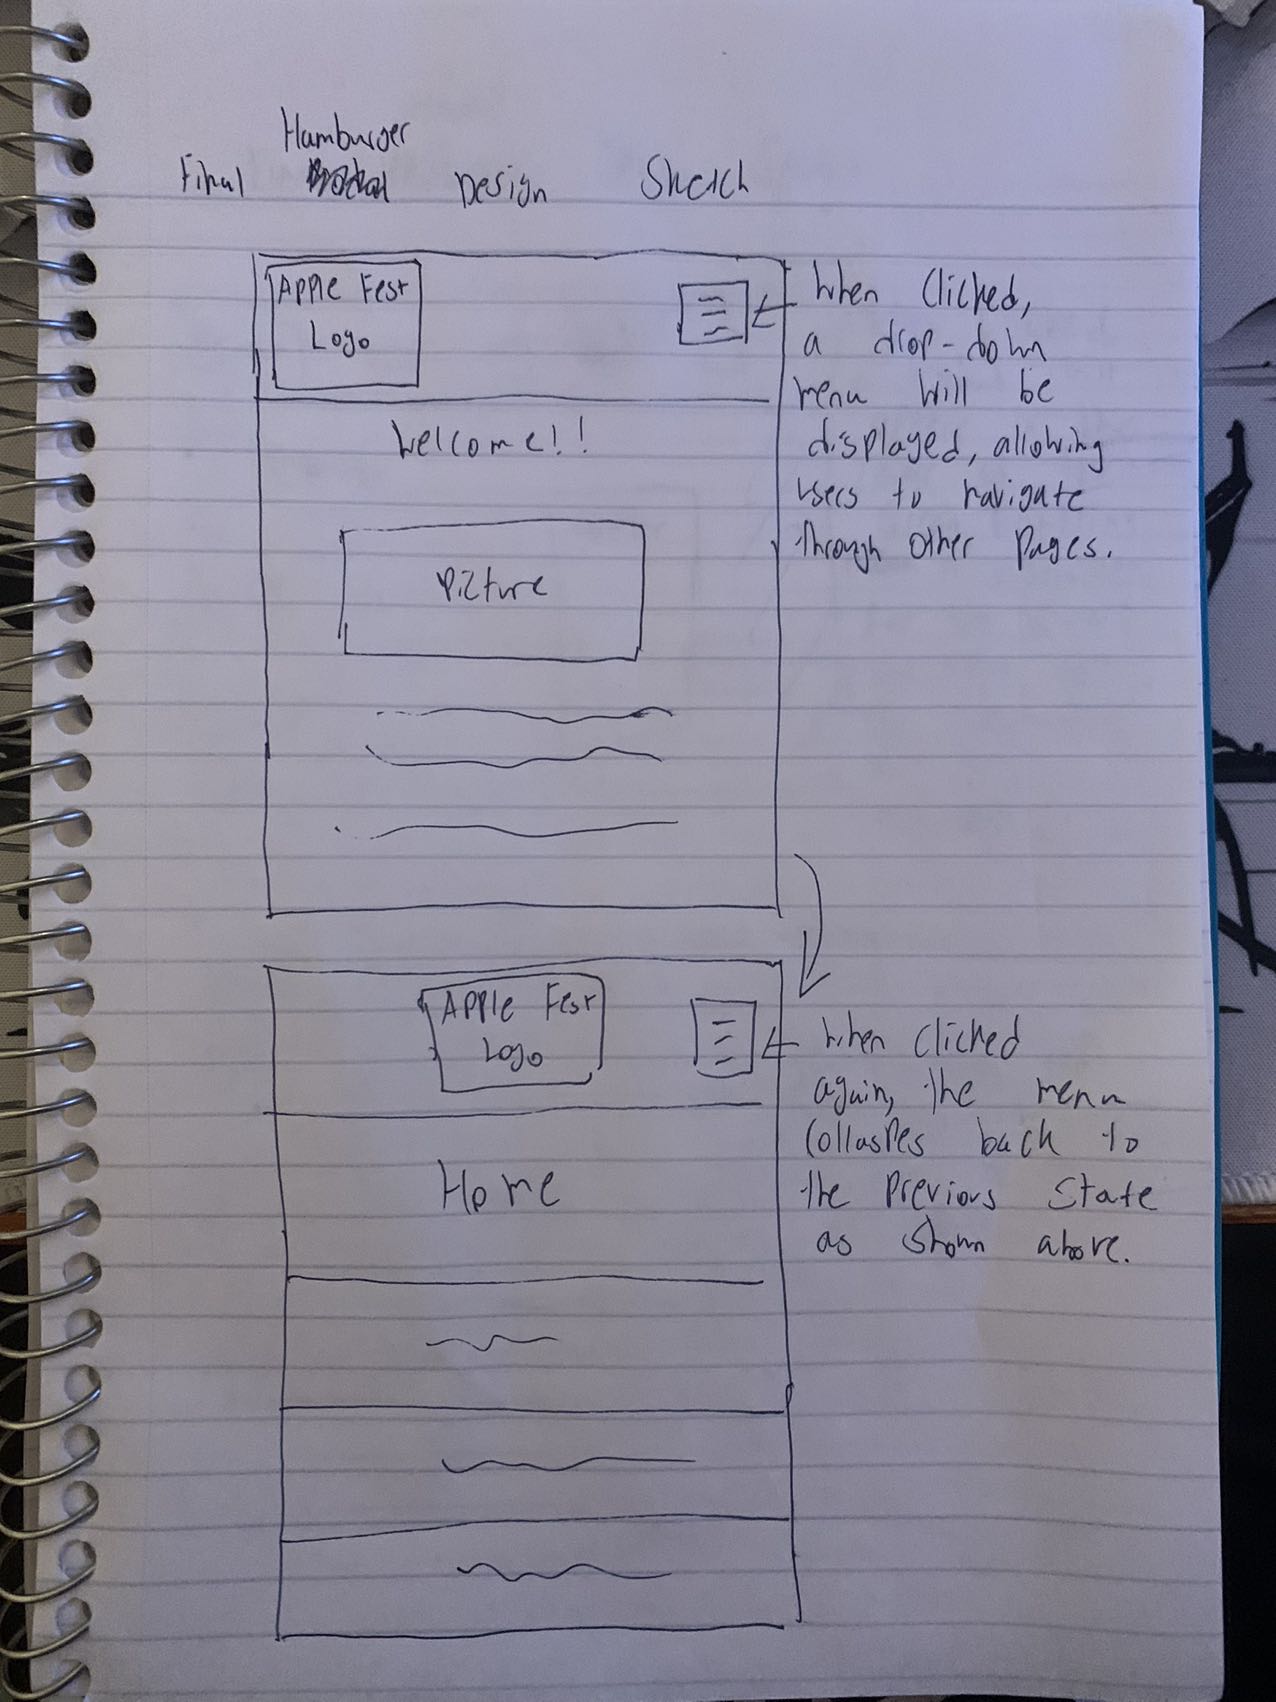 Hamburger
Final Design Sketch
Apple Fest
Logo
When clicked,
a drop-down
menu will be
displayed, allowing
users to navigate
through other pages.
Welcome!!
Picture
Apple Fest
Logo
When clicked
again, the menu
collaspes back to
the previous state
as shown above.
Home